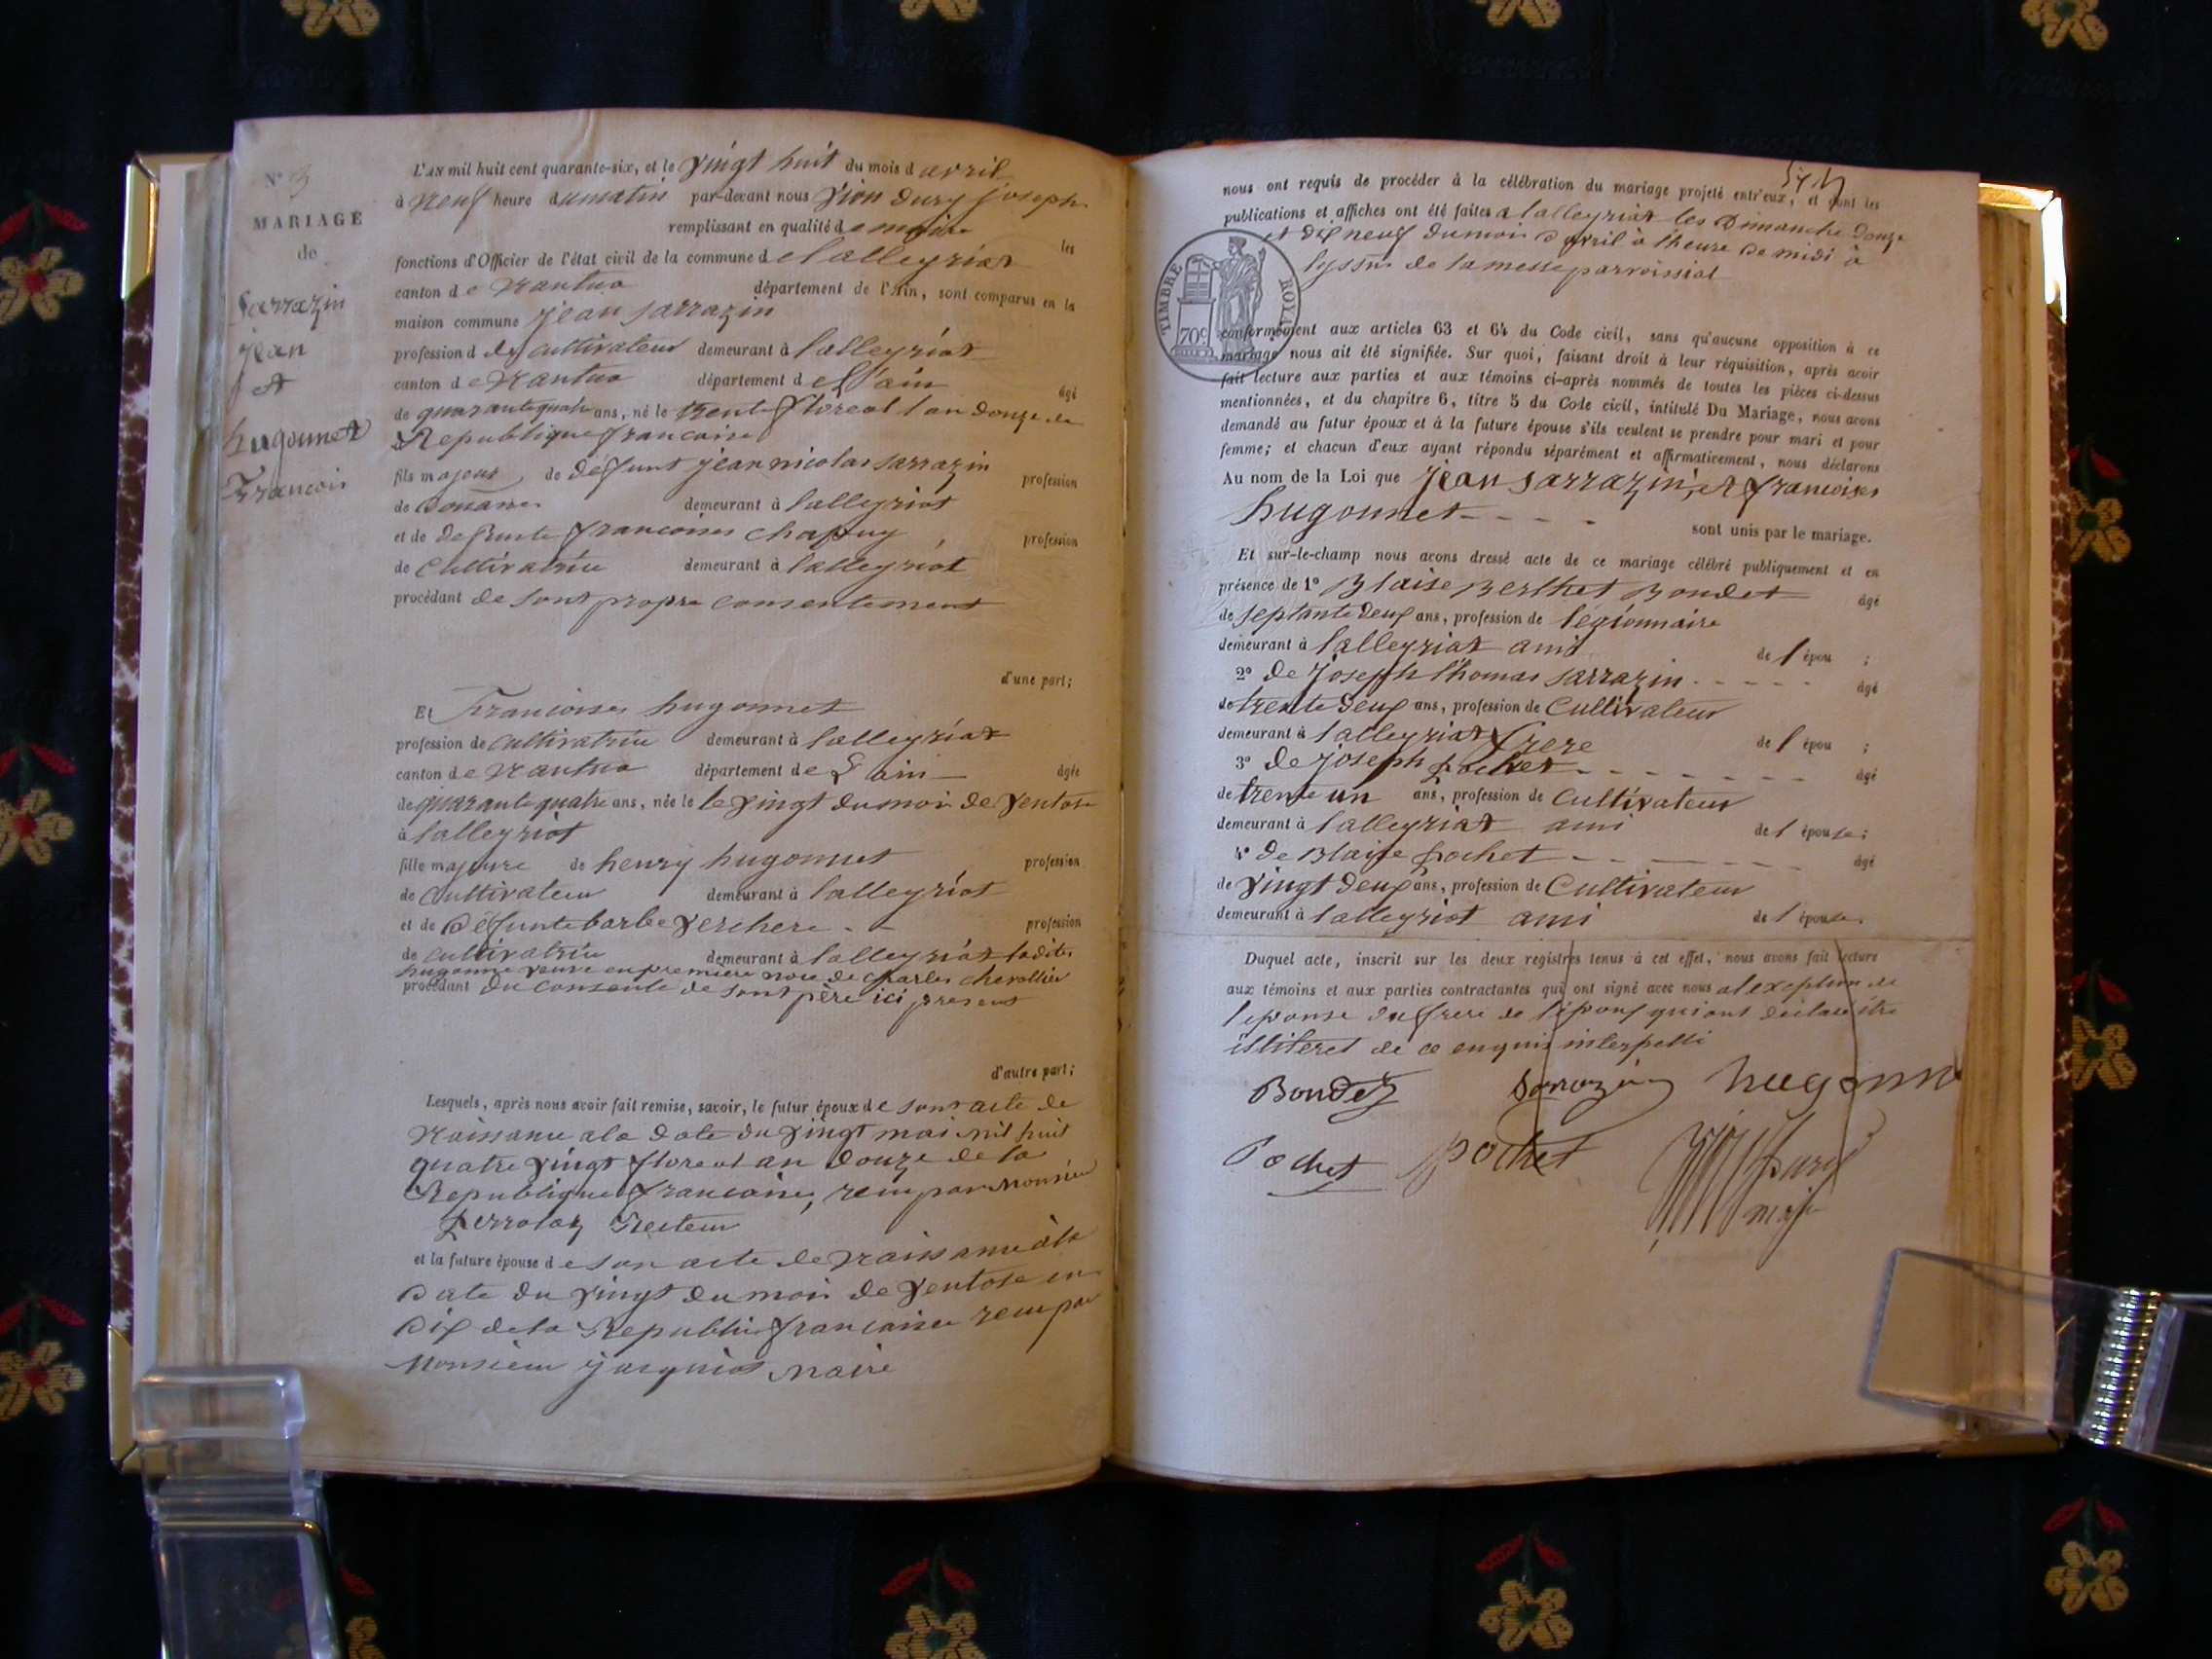 N° 3
MARIAGE
de
Sarrazin
jean
et
hugonnet
Francois
L'AN mil huit cent quarante-six, et le vingt huit du mois d avril
à neuf heure dumatin par-devant nous vion dury joseph
remplissant en qualité de maire les
fonctions d'Officier de l'état civil de la commune de lalleyriat
canton de nantua département de l'Ain, sont comparus en la
maison commune jean sarrazin
profession d de cultivateur demeurant à lalleyriat
canton de nantua département de l'ain âgé
de quarantequatre ans, né le trente floreal l'an douze de
Republique francaise
fils majeur de défunt jean nicolas sarrazin profession
de demeurant à lalleyriat
et de defunte francoises chapuy profession
de Cultivatrice demeurant à lalleyriat
procédant de sont propre consentement
d'une part;
Et Francoises hugonnet
profession de cultivatrice demeurant à lalleyriat
canton de nantua département de l'ain âgée
de quarantequatre ans, née le le vingt dumois de ventose
à lalleyriat
fille majeure de henry hugonnet profession
de Cultivateur demeurant à lalleyriat
et de défuntebarbe verchere profession
de cultivatrice demeurant à lalleyriat ladite
hugonne veuve enpremiere noce de charles chevallier
procédant du consente de sont père ici present
d'autre part;
Lesquels, après nous avoir fait remise, savoir, le futur époux de sont acte de
naissance ala date du vingt mai mil huit
quatre vingt floreal an douze de la
Republique francaise, recu par monsieur
Recteur
et la future épouse de son acte de naissance à la
Date du vingt du mois de ventose en
Dix dela Republic francaise recu par
monsieur maire
nous ont requis de procéder à la célébration du mariage projeté entr'eux, et dont les
publications et affiches ont été faites a lalleyriat les Dimanche Douze
et dix neuf dumois d avril à l'heure de midi à
lyssue de la messe parroissial
TIMBRE ROYAL
70c
conformément aux articles 63 et 64 du Code civil, sans qu'aucune opposition à ce
mariage nous ait été signifiée. Sur quoi, faisant droit à leur réquisition, après avoir
fait lecture aux parties et aux témoins ci-après nommés de toutes les pièces ci-dessus
mentionnées, et du chapitre 6, titre 5 du Code civil, intitulé Du Mariage, nous avons
demandé au futur époux et à la future épouse s'ils veulent se prendre pour mari et pour
femme; et chacun d'eux ayant répondu séparément et affirmativement, nous déclarons
Au nom de la Loi que jean sarrazin, et francoises
hugonnet - - - - sont unis par le mariage.
Et sur-le-champ nous avons dressé acte de ce mariage célébré publiquement et en
présence de 1° Blaise Berthet Bondet âgé
de septante deux ans, profession de légionnaire
demeurant à lalleyriat ami de l épou ;
2° de joseph thomas sarrazin - - - - - âgé
de trente deux ans, profession de Cultivateur
demeurant à lalleyriat frere de l épou ;
3° de joseph pochet - - - - - - - âgé
de trente un ans, profession de Cultivateur
demeurant à lalleyriat ami de l épouse;
4° de Blaise pochet - - - - - âgé
de vingt deux ans, profession de Cultivateur
demeurant à lalleyriat ami de l épouse.
Duquel acte, inscrit sur les deux registres tenus à cet effet, nous avons fait lecture
aux témoins et aux parties contractantes qui ont signé avec nous alexeption de
lepouse du frere de l'époux qui ont déclaré être
illiteret de ce enquis interpelli
Bondet Sarrazin hugonn
Pochet pochet
dury
maire